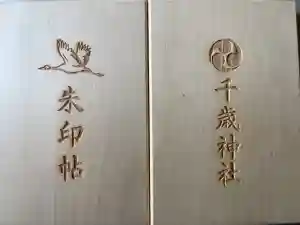 朱印帖
千歳神社